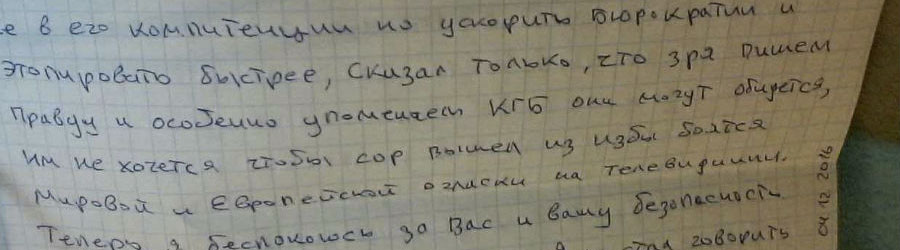 е в его компитенции но ускорить бюрократии и
этопировать быстрее, сказал только, что зря пишем
правду и особенно упоменаем КГБ они могут обидется,
им не хочется чтобы сор вышел из избы боятся
мировой и Европейской огласки на телевидинии.
Теперь я беспокоюсь за Вас и вашу безопасность
говорить
04 12 2016